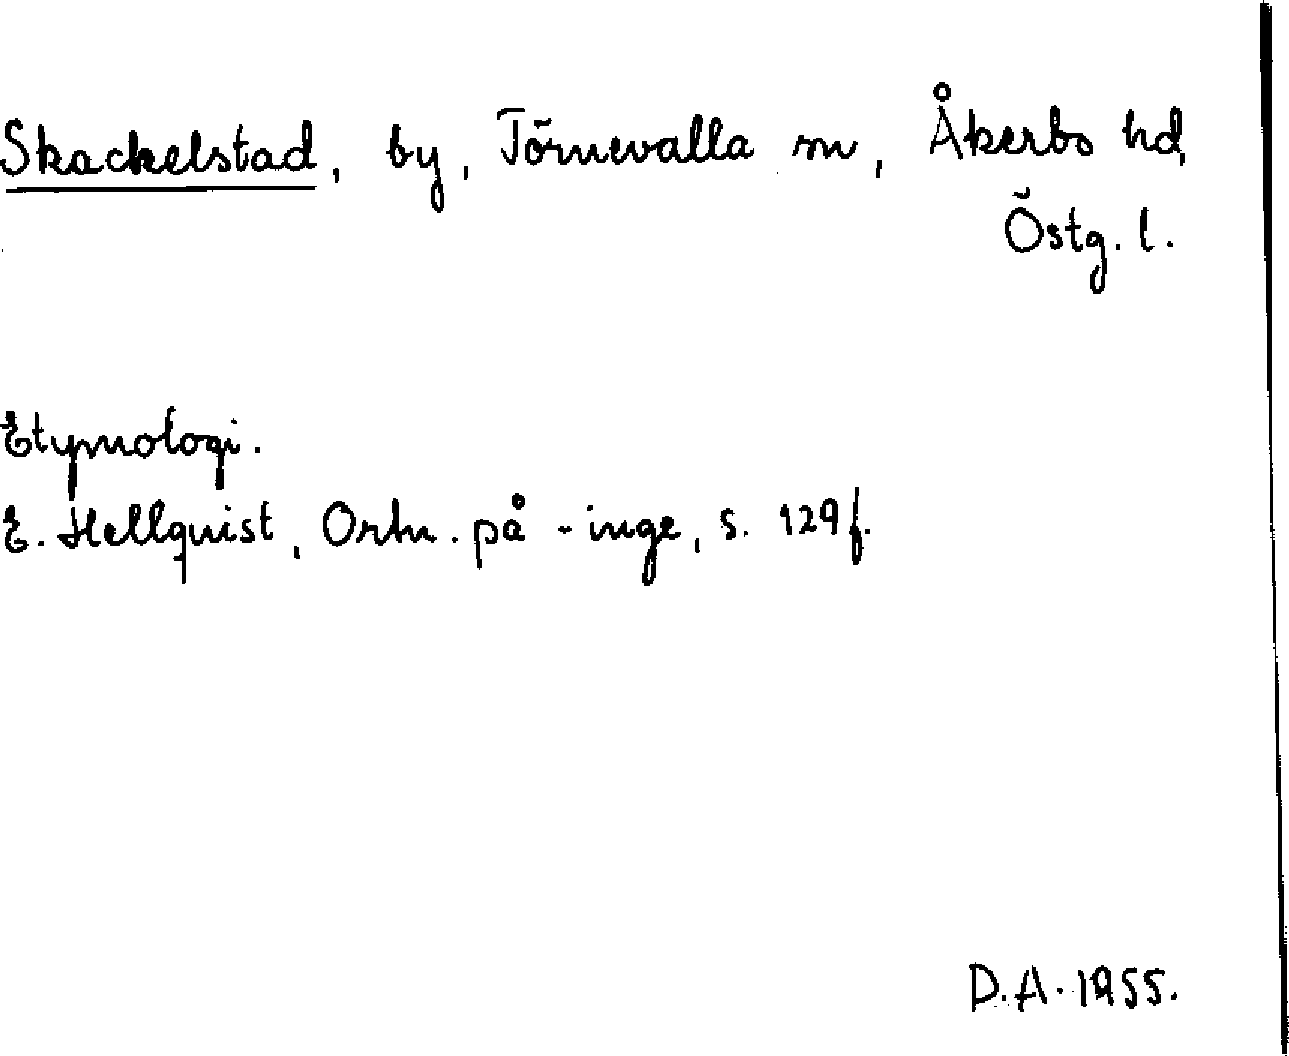 Skackelstad, by, Törnevalla sn, Åkerbo hd,
Östg. l.
Etymologi.
E. Hellquist, Ortn. på -inge, s. 129 f.
D.A. 1955.